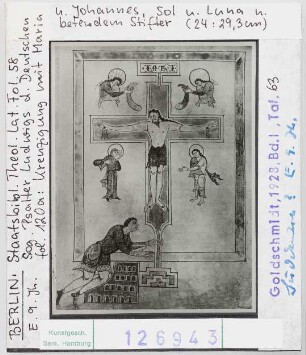 BERLIN: Staatsbibl. Theol. Lat. Fol. 58
Sog. Psalter Ludwigs d. Deutschen
E. 9. Jh. fol. 120a: Kreuzigung mit Maria
u. Johannes, Sol u. Luna u.
betendem Stifter (24:29,3cm)
Goldschmidt, 1928. Bd. I. Taf. 63
E. 9. Jh.
Kunstgesch.
Sem. Hamburg
126943